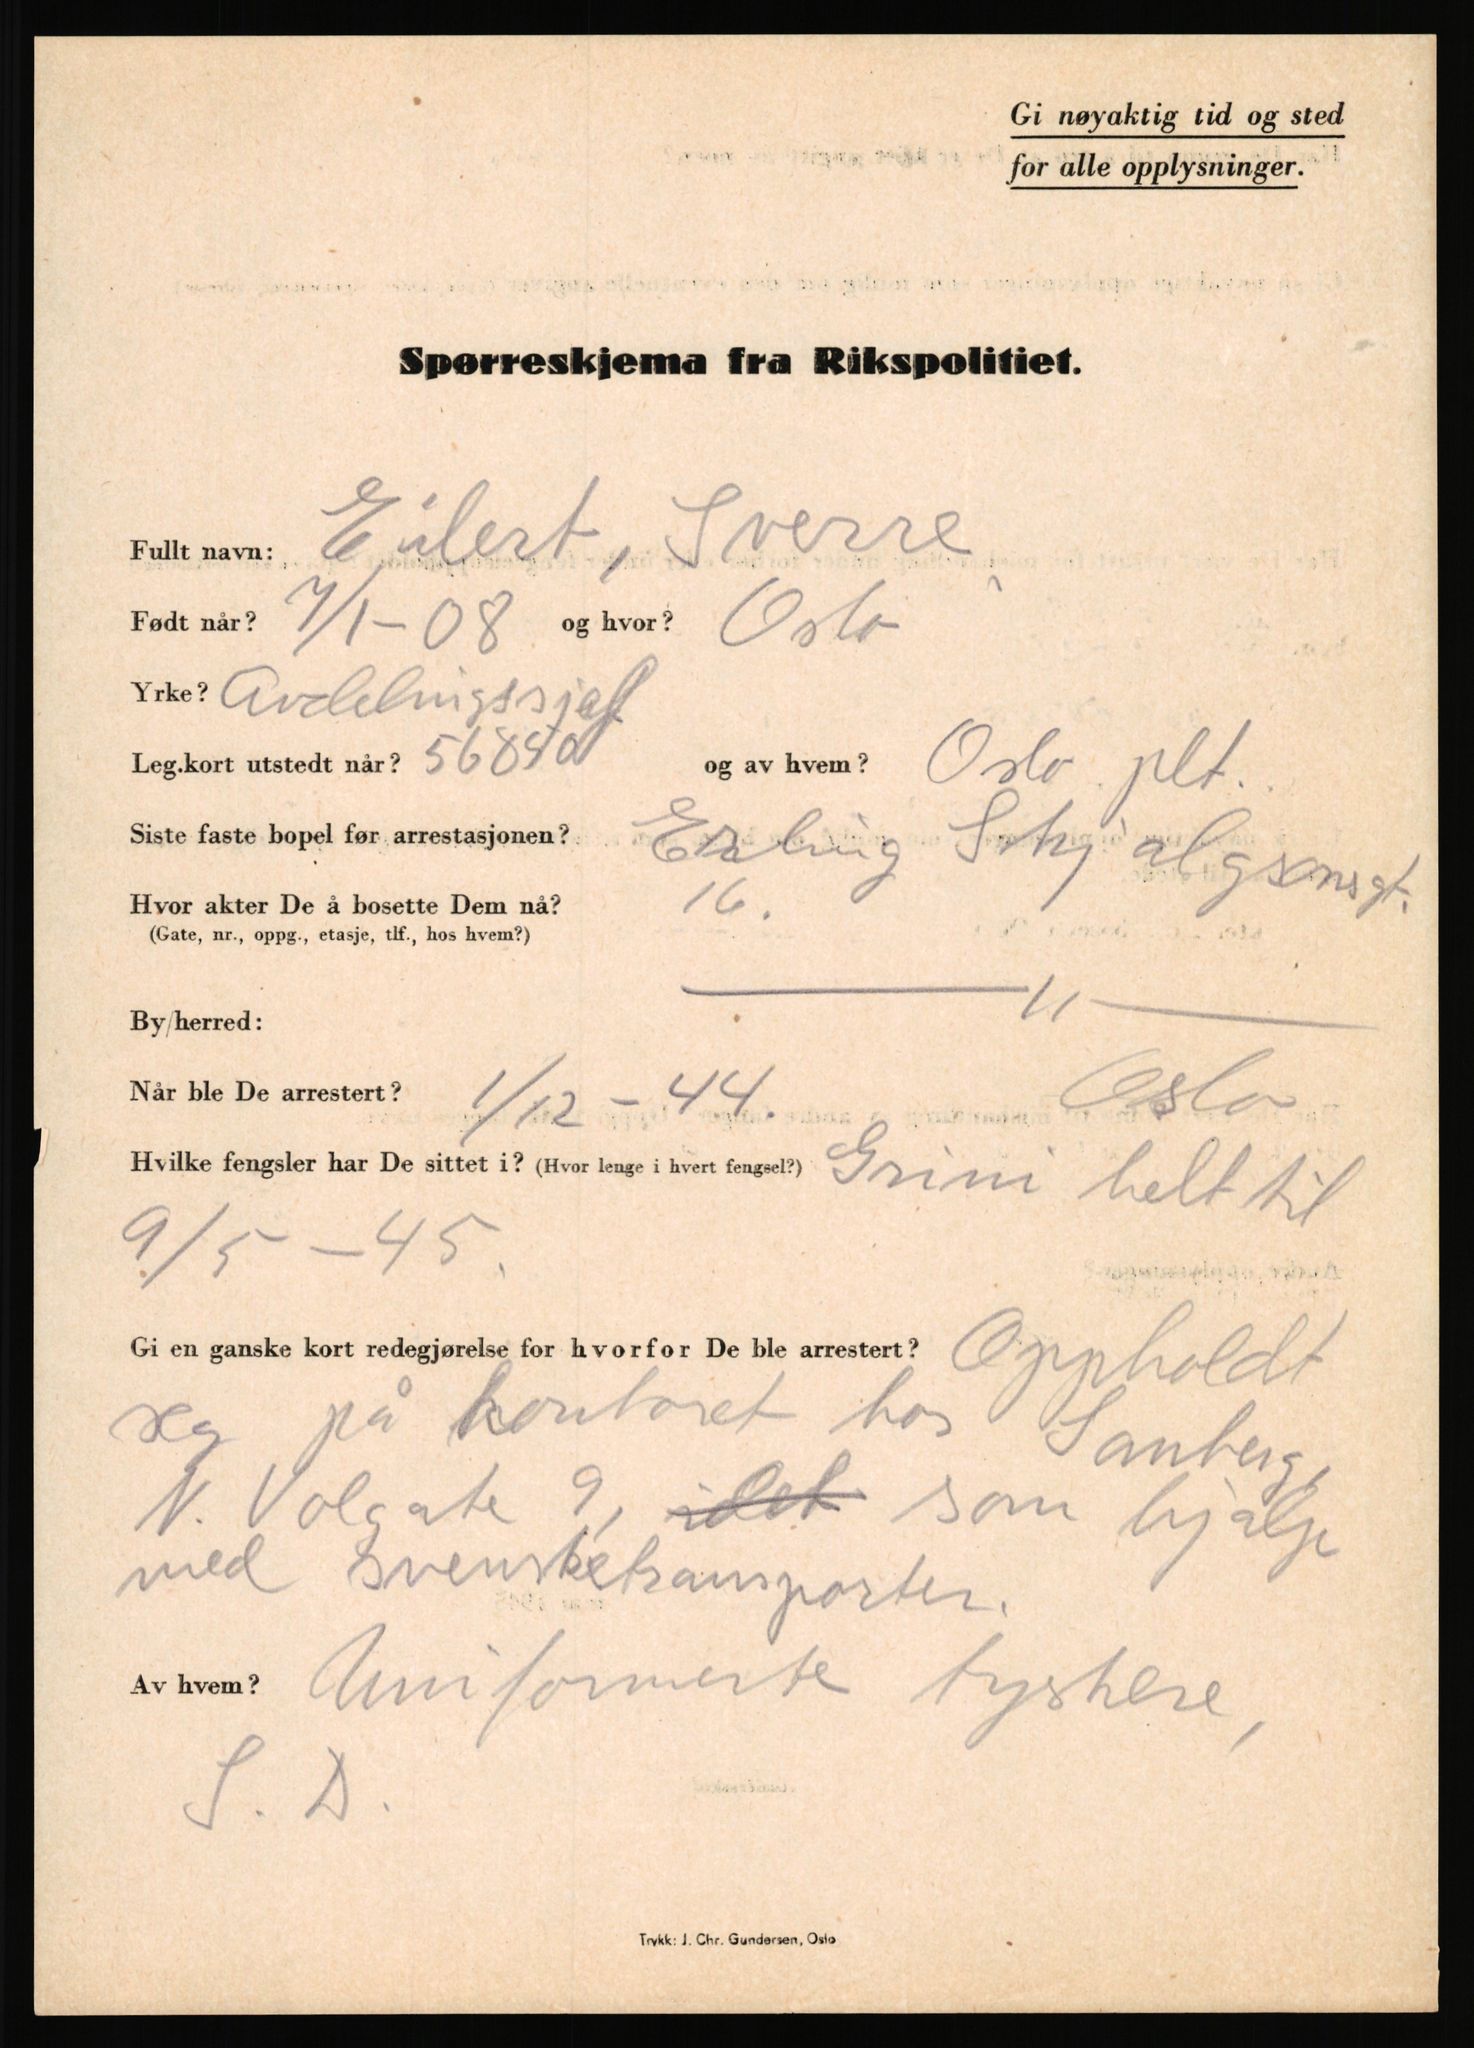 Gi nøyaktig tid og sted
for alle opplysninger.
Spørreskjema fra Rikspolitiet.
Fullt navn: Eilert, Sverre
Født når? 7/1-08 og hvor? Oslo
Yrke? Avdelingssjef
Leg.kort utstedt når? 56840 og av hvem? Oslo plt.
Siste faste bopel før arrestasjonen? Erling Skjalgsonsgt.
Hvor akter De å bosette Dem nå? 16.
(Gate, nr., oppg., etasje, tlf., hos hvem?)
—— 11 ——
By/herred:
Når ble De arrestert? 1/12-44. Oslo
Hvilke fengsler har De sittet i? (Hvor lenge i hvert fengsel?) Grini helt til
9/5-45.
Gi en ganske kort redegjørelse for hvorfor De ble arrestert? Oppholdt
seg på kontoret hos Sanberg,
N. Volgate 9, idet som hjalp
med svensketransporter.
Av hvem? Uniformerte tyskere,
S. D.
Trykk: J. Chr. Gundersen, Oslo